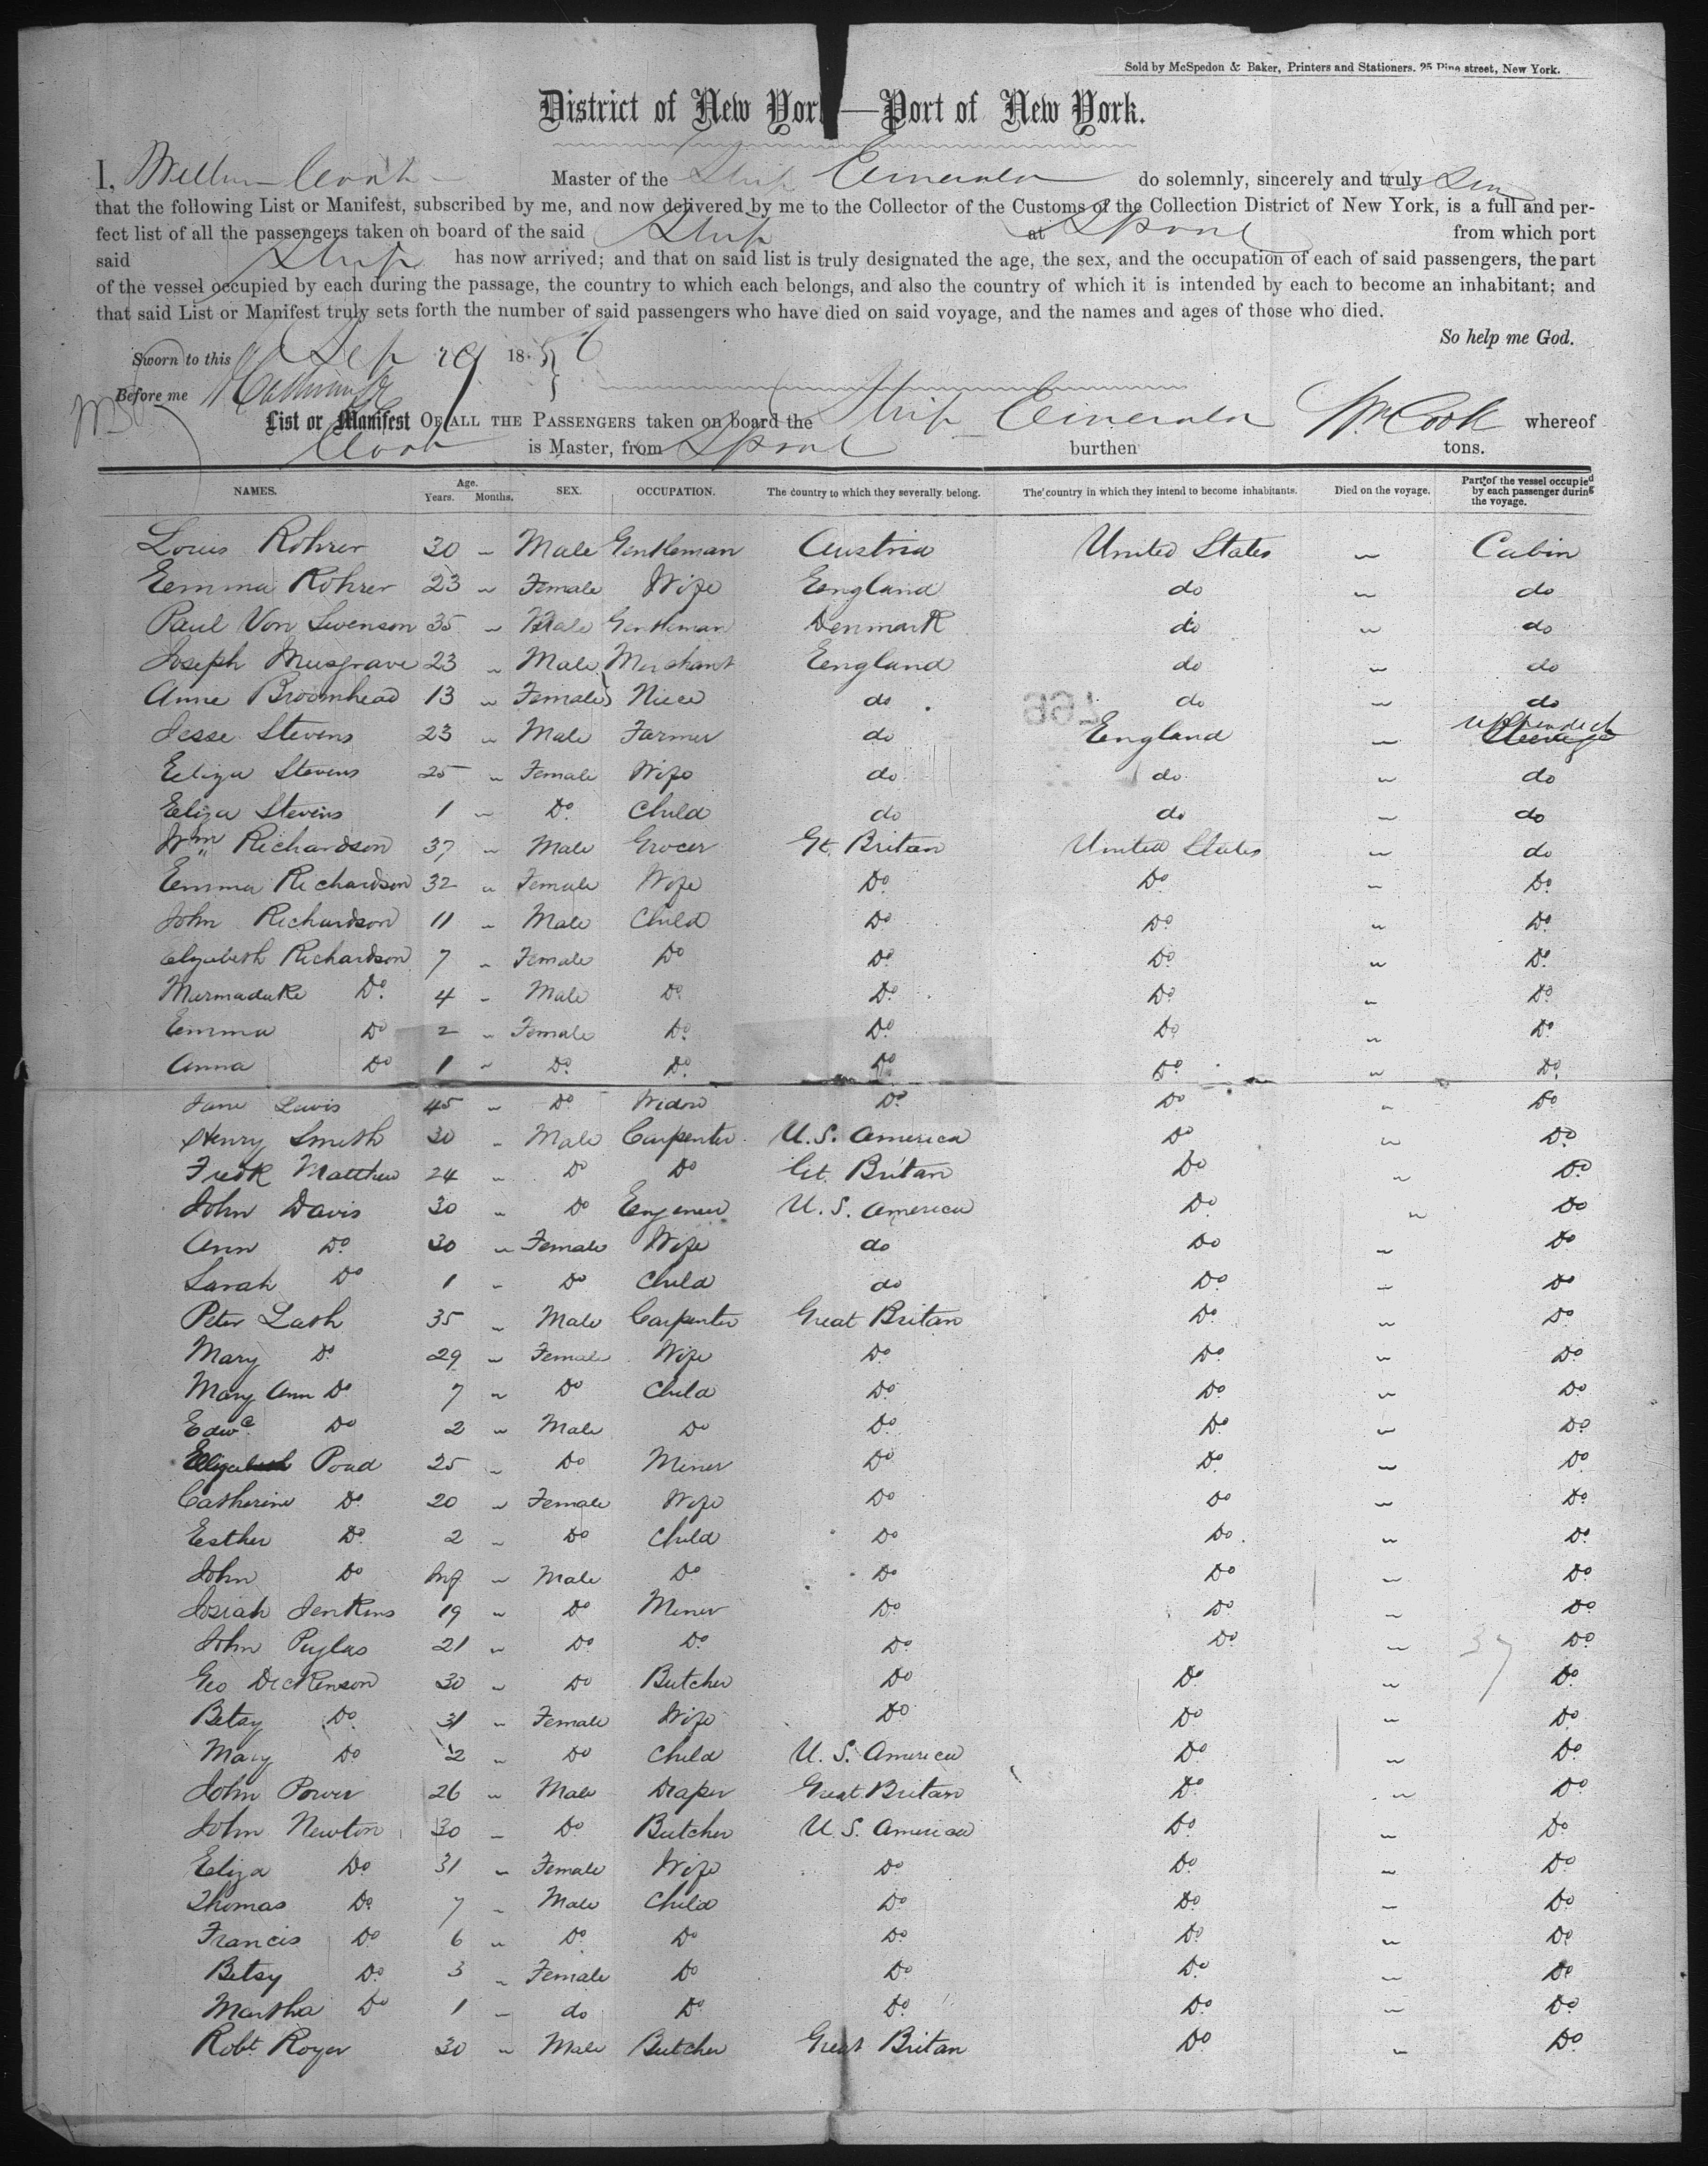 Sold by McSpedon & Baker, Printers and Stationers. 25 Pine street, New York.
District of New York—Port of New York.
I, William Cook Master of the Ship Emerald do solemnly, sincerely and truly
that the following List or Manifest, subscribed by me, and now delivered by me to the Collector of the Customs of the Collection District of New York, is a full and per-
fect list of all the passengers taken on board of the said Ship at Lpool from which port
said Ship has now arrived; and that on said list is truly designated the age, the sex, and the occupation of each of said passengers, the part
of the vessel occupied by each during the passage, the country to which each belongs, and also the country of which it is intended by each to become an inhabitant; and
that said List or Manifest truly sets forth the number of said passengers who have died on said voyage, and the names and ages of those who died.
So help me God.
Sworn to this Sep 29 1856
Before me
List or Manifest OF ALL THE PASSENGERS taken on board the Ship Emerald Wm Cook whereof
Cook is Master, from Lpool burthen tons.
NAMES. Age. Years. Months. SEX. OCCUPATION. The country to which they severally belong. The country in which they intend to become inhabitants. Died on the voyage. Part of the vessel occupied by each passenger during the voyage.
Louis Rohrer 30 " Male Gentleman Austria United States " Cabin
Emma Rohrer 23 " Female Wife England do " do
Paul Von Swenson 35 " Male Gentleman Denmark do " do
Joseph Musgrave 23 " Male Merchant England do " do
Anne Broomhead 13 " Female Niece do do " do
766
Jesse Stevens 23 " Male Farmer do England " upper deck
Eliza Stevens 25 " Female Wife do do " do
Eliza Stevens 1 " Do Child do do " do
Wm Richardson 37 " Male Grocer Gt. Britan United States " do
Emma Richardson 32 " Female Wife Do Do " Do
John Richardson 11 " Male Child Do Do " Do
Elizabeth Richardson 7 " Female Do Do Do " Do
Marmaduke Do 4 " Male Do Do Do " Do
Emma Do 2 " Female Do Do Do " Do
Anna Do 1 " Do Do Do Do " Do
Jane Lewis 45 " Do Widow Do Do " Do
Henry Smith 30 " Male Carpenter U.S. America Do " Do
Fredk Matthew 24 " Do Do Gt. Britan Do " Do
John Davis 30 " Do Engineer U.S. America Do " Do
Ann Do 30 " Female Wife do Do " Do
Sarah Do 1 " Do Child do Do " Do
Peter Lash 35 " Male Carpenter Great Britan Do " Do
Mary Do 29 " Female Wife Do Do " Do
Mary Ann Do 7 " Do Child Do Do " Do
Edwd Do 2 " Male Do Do Do " Do
Poad 25 " Do Miner Do Do " Do
Catherine Do 20 " Female Wife Do Do " Do
Esther Do 2 " Do Child Do Do " Do
John Do Inf " Male Do Do Do " Do
Josiah Jenkins 19 " Do Miner Do Do " Do
John 21 " Do Do Do Do " 37 Do
Geo Dickenson 30 " Do Butcher Do Do " Do
Betsy Do 31 " Female Wife Do Do " Do
Mary Do 2 " Do Child U.S. America Do " Do
John Power 26 " Male Draper Great Britan Do " Do
John Newton 30 " Do Butcher U.S. America Do " Do
Eliza Do 31 " Female Wife Do Do " Do
Thomas Do 7 " Male Child Do Do " Do
Francis Do 6 " Do Do Do Do " Do
Betsy Do 3 " Female Do Do Do " Do
Martha Do 1 " do Do Do Do " Do
Robt Royer 30 " Male Butcher Great Britan Do " Do